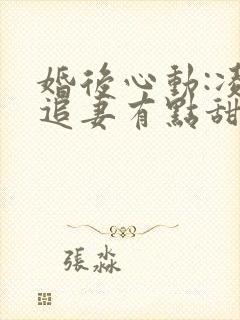 婚後心動:凌
追妻有點甜
張淼